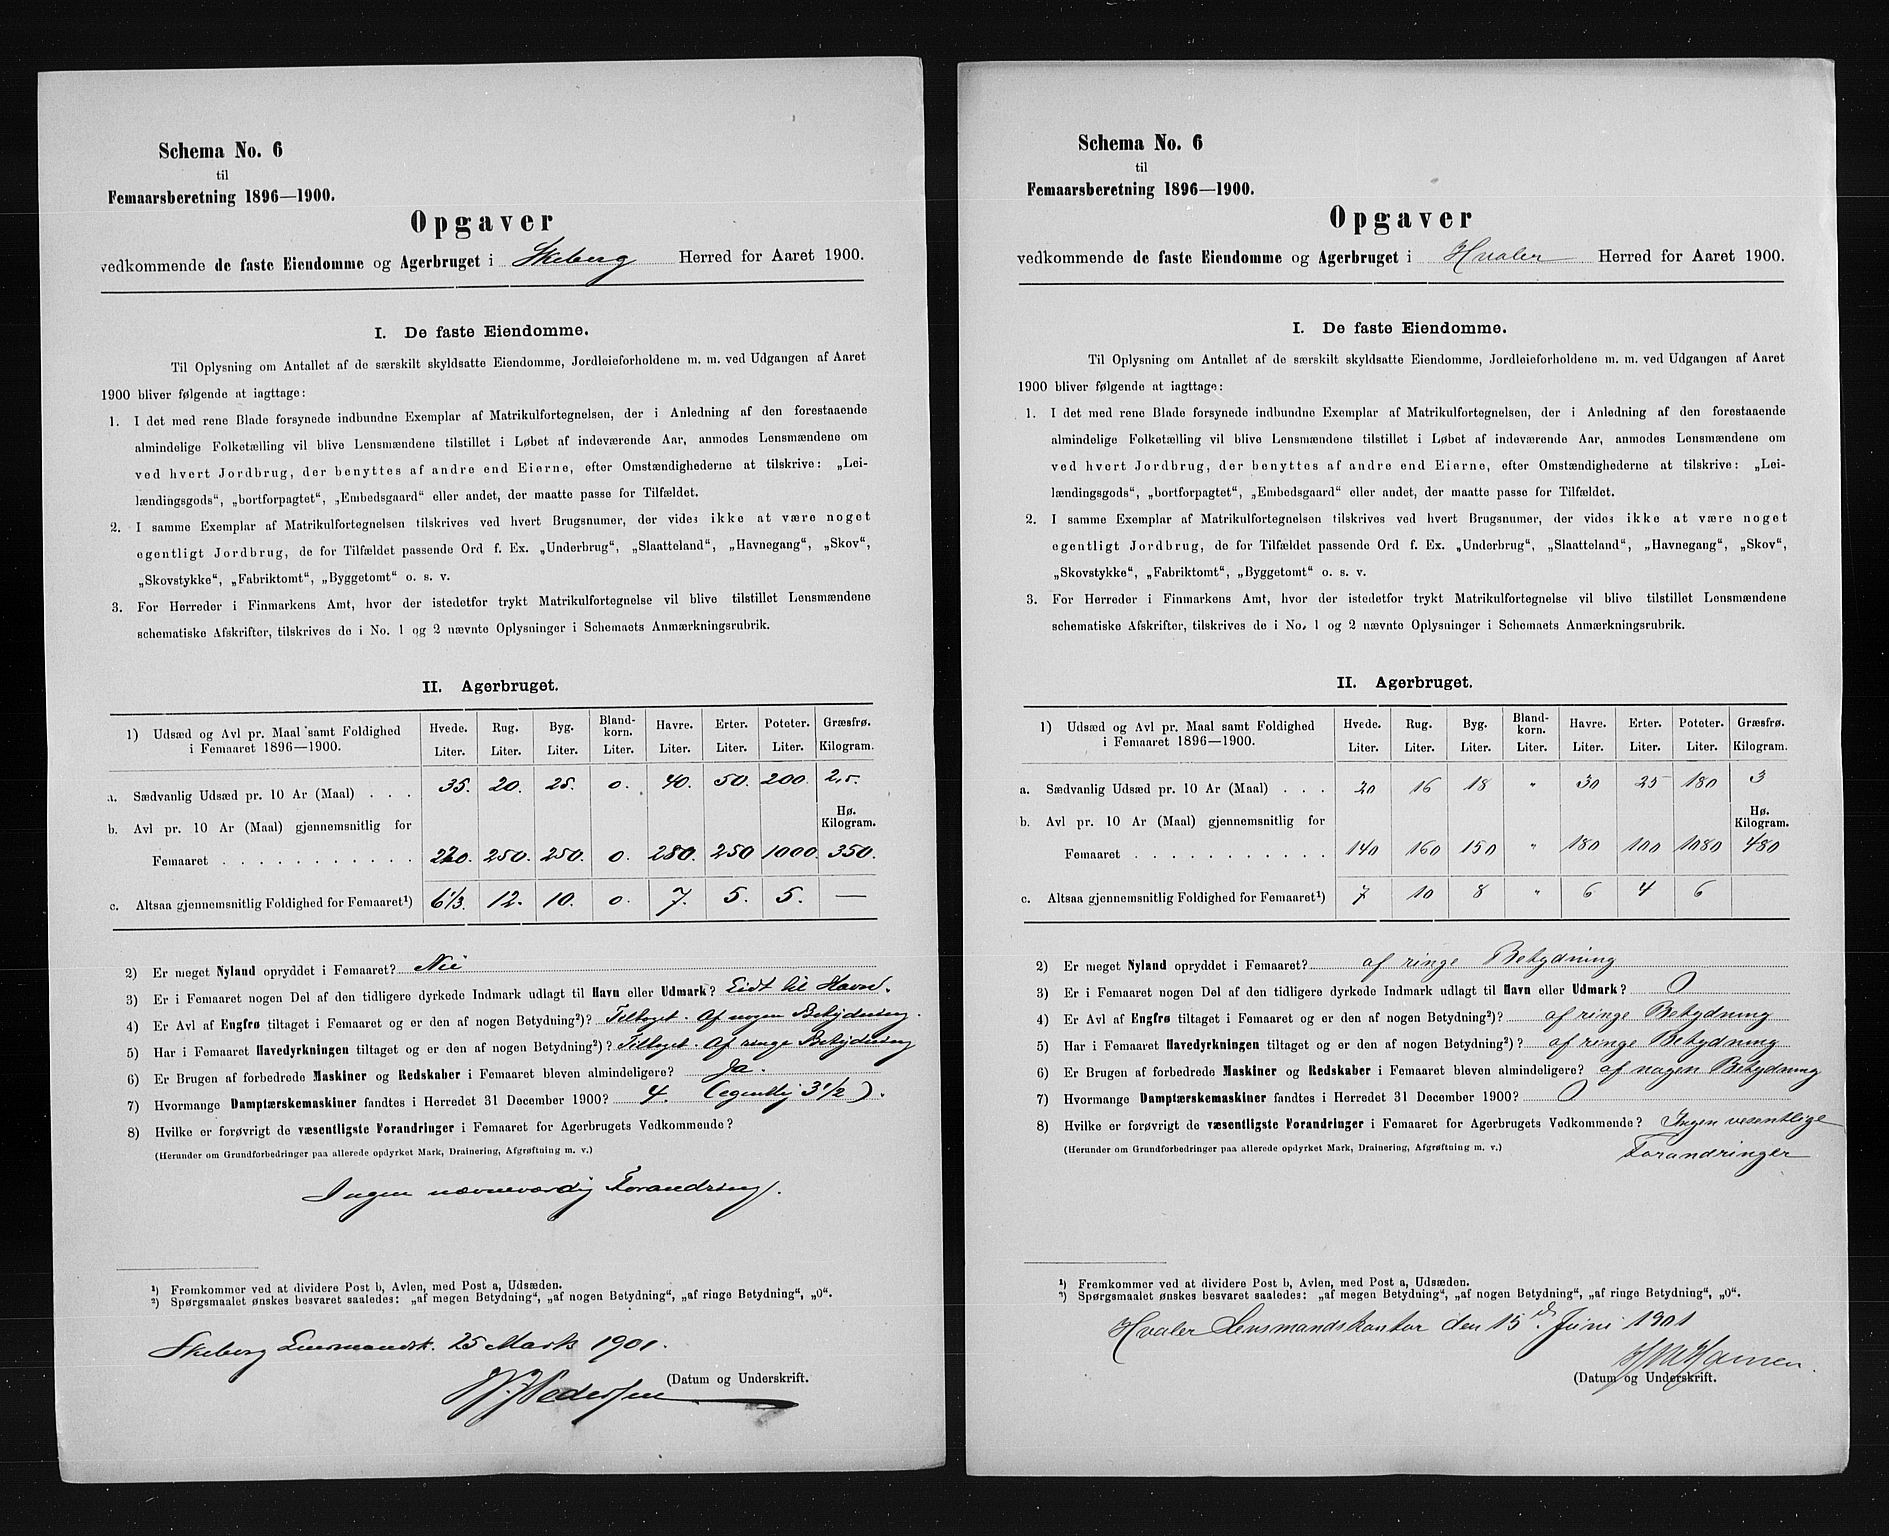 Schema No. 6
til
Femaarsberetning 1896—1900.
Opgaver
vedkommende de faste Eiendomme og Agerbruget i Skeberg Herred for Aaret 1900.
I. De faste Eiendomme.
Til Oplysning om Antallet af de særskilt skyldsatte Eiendomme, Jordleieforholdene m. m. ved Udgangen af Aaret
1900 bliver følgende at iagttage:
1. I det med rene Blade forsynede indbundne Exemplar af Matrikulfortegnelsen, der i Anledning af den forestaaende
almindelige Folketælling vil blive Lensmændene tilstillet i Løbet af indeværende Aar, anmodes Lensmændene om
ved hvert Jordbrug, der benyttes af andre end Eierne, efter Omstændighederne at tilskrive: „Lei-
lændingsgods“, „bortforpagtet“, „Embedsgaard“ eller andet, der maatte passe for Tilfældet.
2. I samme Exemplar af Matrikulfortegnelsen tilskrives ved hvert Brugsnumer, der vides ikke at være noget
egentligt Jordbrug, de for Tilfældet passende Ord f. Ex. „Underbrug“, „Slaatteland“, „Havnegang“, „Skov“,
„Skovstykke“, „Fabriktomt“, „Byggetomt“ o. s. v.
3. For Herreder i Finmarkens Amt, hvor der istedetfor trykt Matrikulfortegnelse vil blive tilstillet Lensmændene
schematiske Afskrifter, tilskrives de i No. 1 og 2 nævnte Oplysninger i Schemaets Anmærkningsrubrik.
II. Agerbruget.
1) Udsæd og Avl pr. Maal samt Foldighed i Femaaret 1896—1900. Hvede. Liter. Rug. Liter. Byg. Liter. Bland-korn. Liter. Havre. Liter. Erter. Liter. Poteter. Liter. Græsfrø. Kilogram.
a. Sædvanlig Udsæd pr. 10 Ar (Maal) . . . 35. 20. 25. 0. 40. 50. 200. 2,5.
Hø. Kilogram.
b. Avl pr. 10 Ar (Maal) gjennemsnitlig for
Femaaret . . . . . . . . . . . 220. 250. 250. 0. 280. 250 1000. 350.
c. Altsaa gjennemsnitlig Foldighed for Femaaret¹) 6 1/3. 12. 10. 0. 7. 5. 5. —
2) Er meget Nyland opryddet i Femaaret? Nei
3) Er i Femaaret nogen Del af den tidligere dyrkede Indmark udlagt til Havn eller Udmark? Lidt til Havn.
4) Er Avl af Engfrø tiltaget i Femaaret og er den af nogen Betydning²)? Tiltaget. Af nogen Betydning.
5) Har i Femaaret Havedyrkningen tiltaget og er den af nogen Betydning²)? Tiltaget. Af ringe Betydning
6) Er Brugen af forbedrede Maskiner og Redskaber i Femaaret bleven almindeligere? Ja.
7) Hvormange Damptærskemaskiner fandtes i Herredet 31 December 1900? 4. (egentlig 3 1/2).
8) Hvilke er forøvrigt de væsentligste Forandringer i Femaaret for Agerbrugets Vedkommende?
(Herunder om Grundforbedringer paa allerede opdyrket Mark, Drainering, Afgrøftning m. v.)
Ingen nævneværdig Forandring.
¹) Fremkommer ved at dividere Post b, Avlen, med Post a, Udsæden.
²) Spørgsmaalet ønskes besvaret saaledes: „af megen Betydning“, „af nogen Betydning“, „af ringe Betydning“, „0“.
Skeberg Lensmandsk. 25 Marts 1901.
Pedersen
(Datum og Underskrift.
Schema No. 6
til
Femaarsberetning 1896—1900.
Opgaver
vedkommende de faste Eiendomme og Agerbruget i Hvaler Herred for Aaret 1900.
I. De faste Eiendomme.
Til Oplysning om Antallet af de særskilt skyldsatte Eiendomme, Jordleieforholdene m. m. ved Udgangen af Aaret
1900 bliver følgende at iagttage:
1. I det med rene Blade forsynede indbundne Exemplar af Matrikulfortegnelsen, der i Anledning af den forestaaende
almindelige Folketælling vil blive Lensmændene tilstillet i Løbet af indeværende Aar, anmodes Lensmændene om
ved hvert Jordbrug, der benyttes af andre end Eierne, efter Omstændighederne at tilskrive: „Lei-
lændingsgods“, „bortforpagtet“, „Embedsgaard“ eller andet, der maatte passe for Tilfældet.
2. I samme Exemplar af Matrikulfortegnelsen tilskrives ved hvert Brugsnumer, der vides ikke at være noget
egentligt Jordbrug, de for Tilfældet passende Ord f. Ex. „Underbrug“, „Slaatteland“, „Havnegang“, „Skov“,
„Skovstykke“, „Fabriktomt“, „Byggetomt“ o. s. v.
3. For Herreder i Finmarkens Amt, hvor der istedetfor trykt Matrikulfortegnelse vil blive tilstillet Lensmændene
schematiske Afskrifter, tilskrives de i No. 1 og 2 nævnte Oplysninger i Schemaets Anmærkningsrubrik.
II. Agerbruget.
1) Udsæd og Avl pr. Maal samt Foldighed i Femaaret 1896—1900. Hvede. Liter. Rug. Liter. Byg. Liter. Bland-korn. Liter. Havre. Liter. Erter. Liter. Poteter. Liter. Græsfrø. Kilogram.
a. Sædvanlig Udsæd pr. 10 Ar (Maal) . . . 20 16 18 " 30 25 180 3
Hø. Kilogram.
b. Avl pr. 10 Ar (Maal) gjennemsnitlig for
Femaaret . . . . . . . . . . . 140 160 150 " 180 100 1080 480
c. Altsaa gjennemsnitlig Foldighed for Femaaret¹) 7 10 8 " 6 4 6
2) Er meget Nyland opryddet i Femaaret? af ringe Betydning
3) Er i Femaaret nogen Del af den tidligere dyrkede Indmark udlagt til Havn eller Udmark? 0
4) Er Avl af Engfrø tiltaget i Femaaret og er den af nogen Betydning²)? af ringe Betydning
5) Har i Femaaret Havedyrkningen tiltaget og er den af nogen Betydning²)? af ringe Betydning
6) Er Brugen af forbedrede Maskiner og Redskaber i Femaaret bleven almindeligere? af nogen Betydning
7) Hvormange Damptærskemaskiner fandtes i Herredet 31 December 1900? 0
8) Hvilke er forøvrigt de væsentligste Forandringer i Femaaret for Agerbrugets Vedkommende? Ingen vesentlige
(Herunder om Grundforbedringer paa allerede opdyrket Mark, Drainering, Afgrøftning m. v.) Forandringer
¹) Fremkommer ved at dividere Post b, Avlen, med Post a, Udsæden.
²) Spørgsmaalet ønskes besvaret saaledes: „af megen Betydning“, „af nogen Betydning“, „af ringe Betydning“, „0“.
Hvaler Lensmandskontor den 15d. Juni 1901
(Datum og Underskrift.